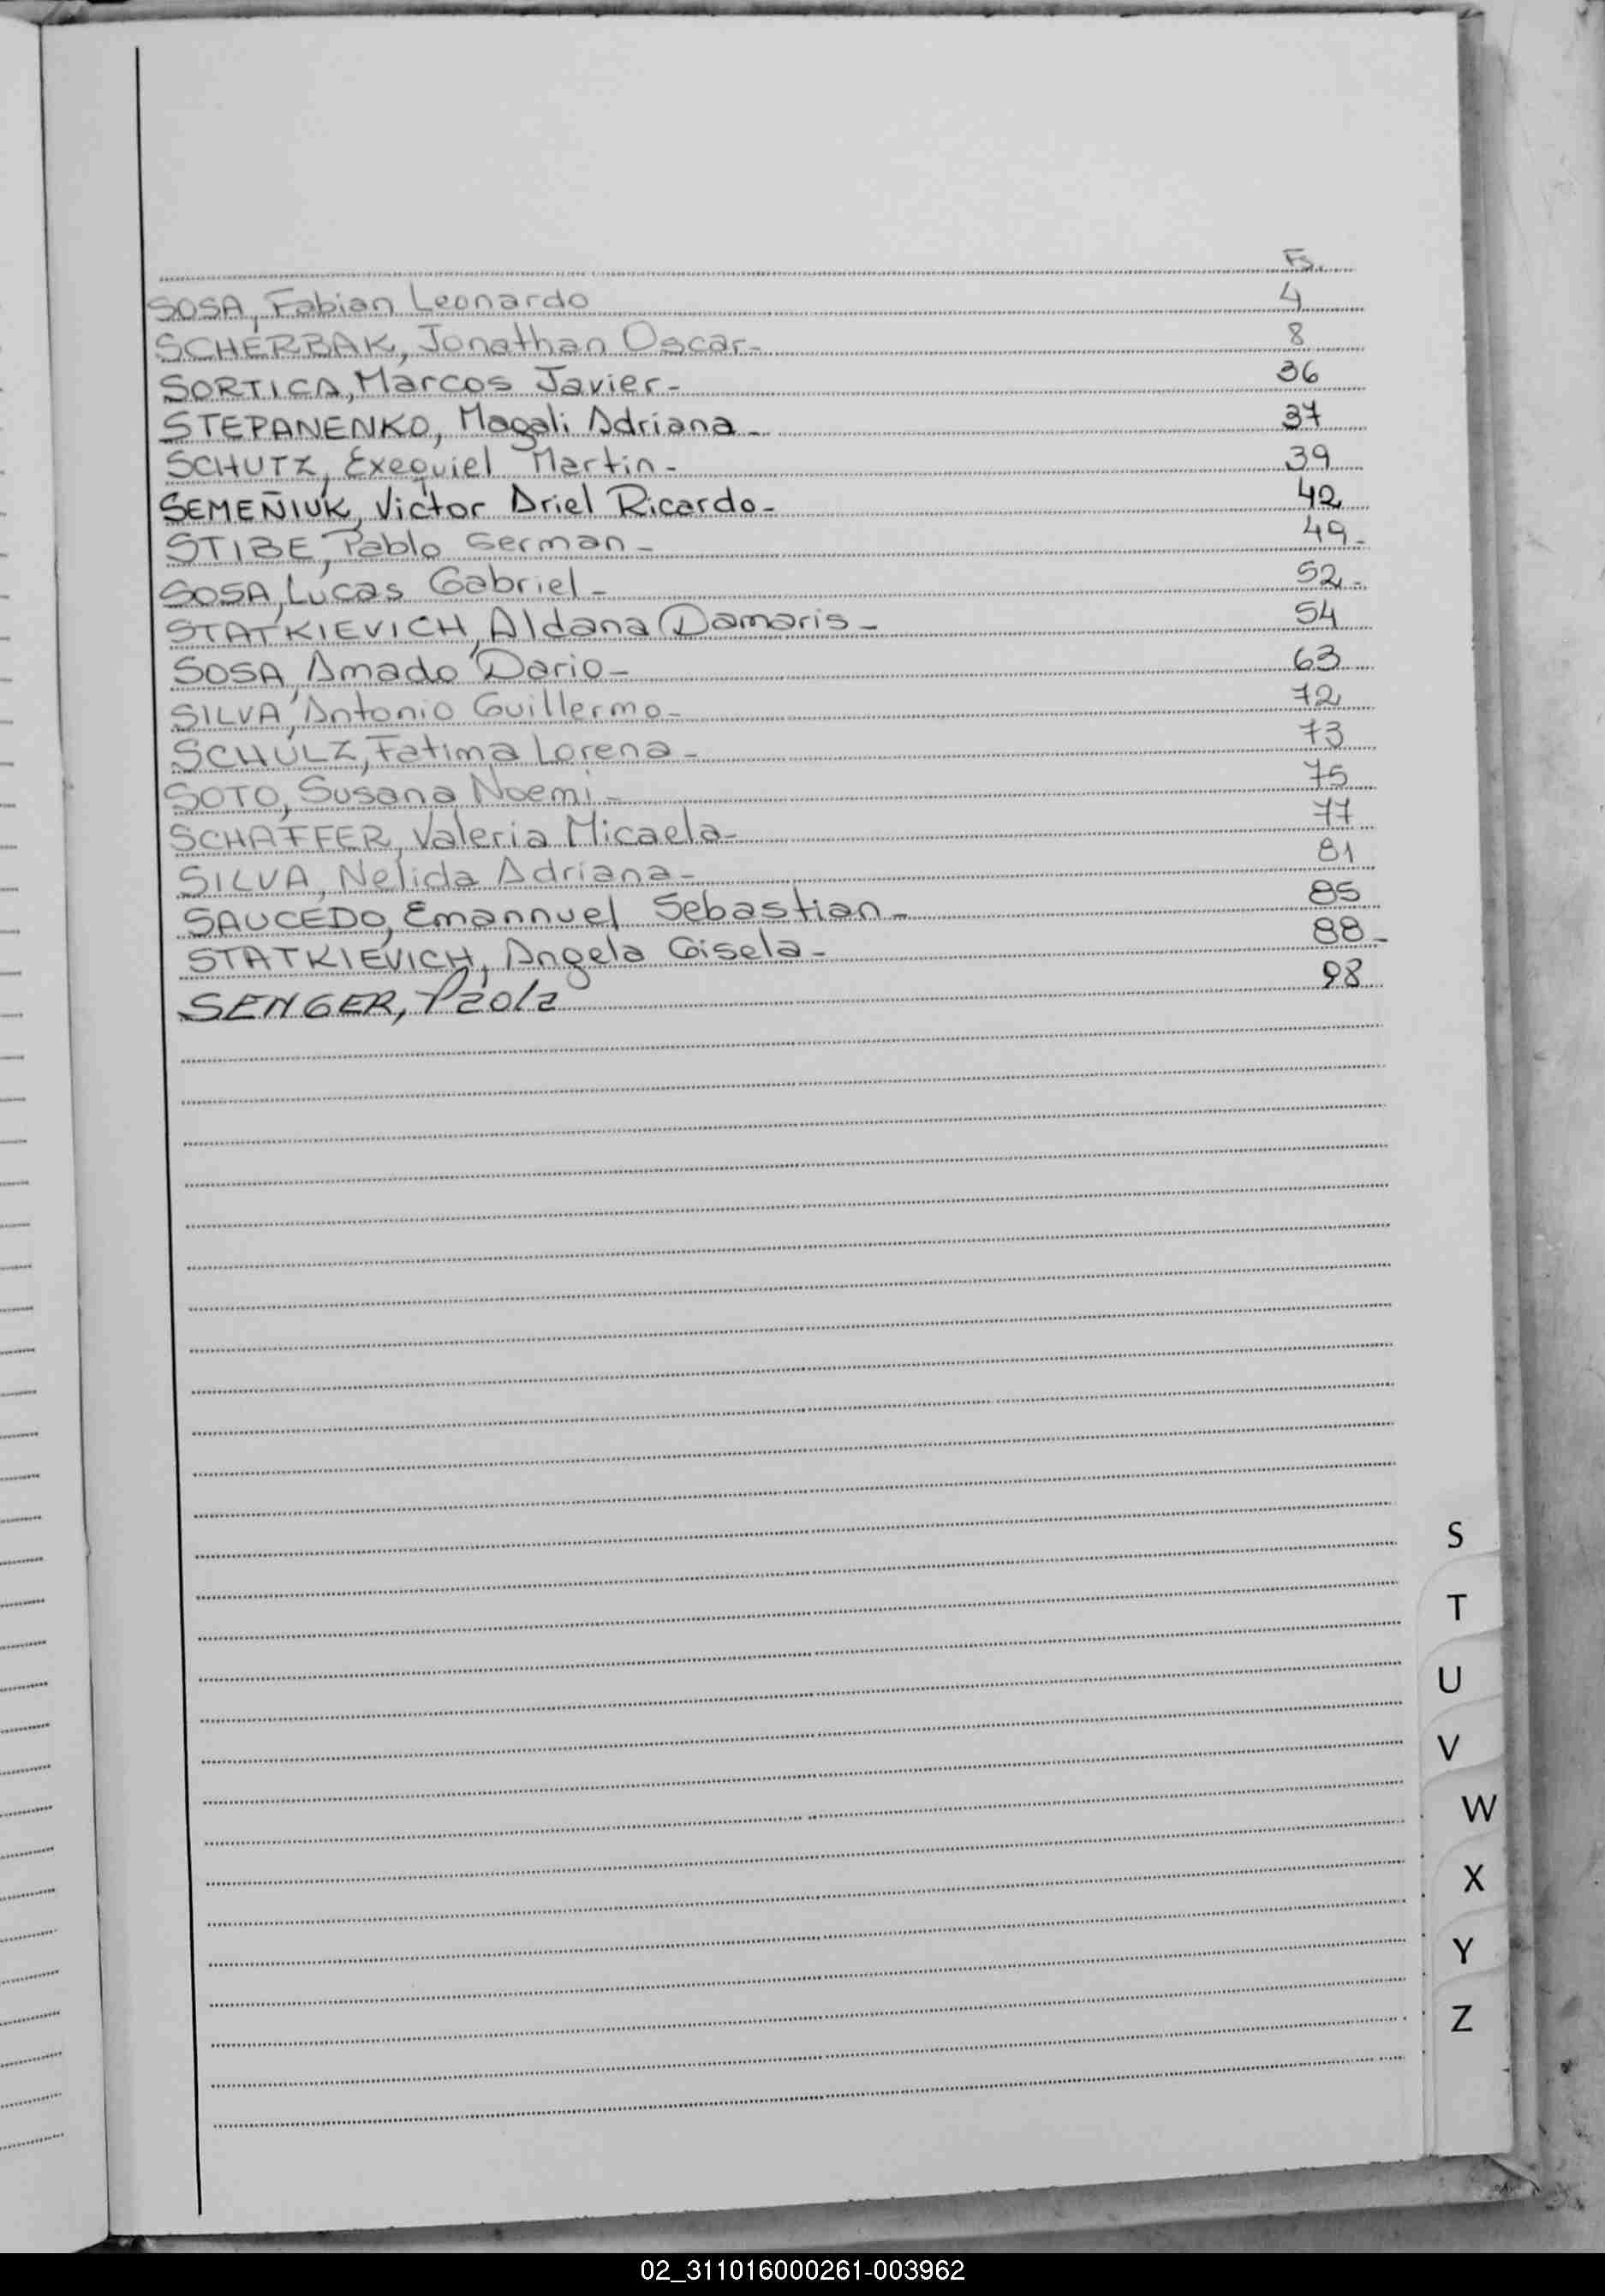 Fs.
SOSA, Fabian Leonardo 4
SCHERBAK, Jonathan Oscar- 8
SORTICA, Marcos Javier- 36
STEPANENKO, Magali Adriana- 37
SCHUTZ, Exequiel Martin- 39
SEMEÑIUK, Victor Ariel Ricardo- 42
STIBE, Pablo German- 49-
SOSA, Lucas Gabriel- 52-
STATKIEVICH, Aldana Damaris- 54
SOSA, Amado Dario- 63
SILVA, Antonio Guillermo- 72
SCHULZ, Fatima Lorena- 73
SOTO, Susana Noemi- 75
SCHAFFER, Valeria Micaela- 77
SILVA, Nelida Adriana- 81
SAUCEDO, Emannuel Sebastian- 85
STATKIEVICH, Angela Gisela- 88-
SENGER, Paola 98
S
T
U
V
W
X
Y
Z
02_311016000261-003962